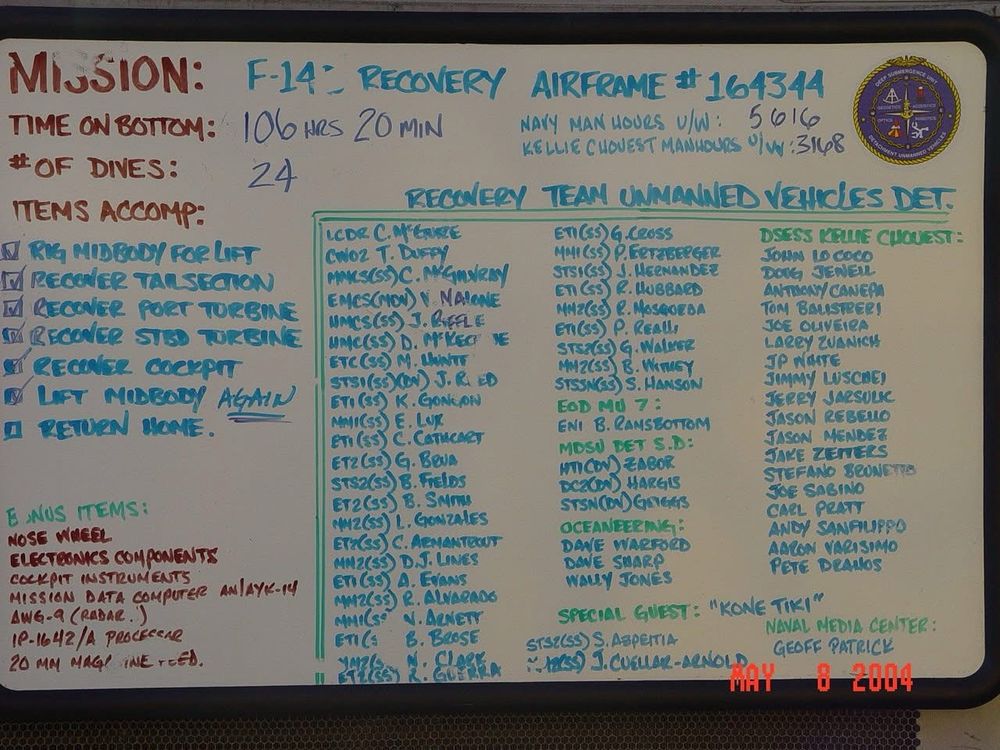 MISSION: F-14 RECOVERY AIRFRAME # 164344
TIME ON BOTTOM: 106 HRS 20 MIN
NAVY MAN HOURS U/W: 5616
KELLIE CHOUEST MANHOURS U/W: 3168
# OF DIVES: 24
ITEMS ACCOMP:
RIG MIDBODY FOR LIFT
RECOVER TAILSECTION
RECOVER PORT TURBINE
RECOVER STBD TURBINE
RECOVER COCKPIT
LIFT MIDBODY AGAIN
RETURN HOME.
BONUS ITEMS:
NOSE WHEEL
ELECTRONICS COMPONENTS
COCKPIT INSTRUMENTS
MISSION DATA COMPUTER AN/AYK-14
AWG-9 (RADAR.)
IP-1642/A PROCESSOR
20 MM
RECOVERY TEAM UNMANNED VEHICLES DET.
LCDR C. McGUIRE
CWO2 T. DUFFY
MMCS(SS) C. McGILLVRAY
EMCS(MDV) V. MALONE
HMCS(SS) J.
HMC(SS) D.
ETC(SS) M.
STS1(SS)(DV) J. REED
ET1(SS) K.
MM1(SS) E. LUX
ET1(SS) C. CATHCART
ET2(SS) G.
STS2(SS) B. FIELDS
ET2(SS) B. SMITH
MM2(SS) L. GONZALES
ET2(SS) C. ARMANTROUT
MM2(SS) D.J. LINES
ET1(SS) A. EVANS
MM2(SS) R. ALVARADO
MM1(SS) V. ARNETT
ET1(SS) B. BROSE
N. CLARK
ET2(SS) R. GUERRA
ET1(SS) G. CROSS
MM1(SS) P. ERTZBERGER
STS1(SS) J. HERNANDEZ
ET1(SS) R. HUBBARD
MM2(SS) R. MOSQUEDA
ET1(SS) P.
STS2(SS) G. WALKER
MM2(SS) B. WITHEY
STSSN(SS) S. HANSON
EOD MU 7:
EN1 B. RANSBOTTOM
MDSU DET S.D:
HT1(DV) ZABOR
DC2(DV) HARGIS
STSN(DV) GRIGGS
OCEANEERING:
DAVE WARFORD
DAVE SHARP
WALLY JONES
SPECIAL GUEST: "KONE TIKI"
STS2(SS) S. AZPEITIA
J. CUELLAR-ARNOLD
DSESS KELLIE CHOUEST:
JOHN LO COCO
DOUG JEWELL
ANTHONY CANEPA
TOM BALISTRERI
JOE OLIVEIRA
LARRY ZUANICH
JP WHITE
JIMMY LUSCHEI
JERRY JARSULIC
JASON REBELLO
JASON MENDEZ
JAKE ZEITERS
STEFANO BRUNETTO
JOE SABINO
CARL PRATT
ANDY SANFILIPPO
AARON VARISIMO
PETE DRAKOS
NAVAL MEDIA CENTER:
GEOFF PATRICK
DEEP SUBMERGENCE UNIT
DETACHMENT UNMANNED VEHICLES
MAY 8 2004